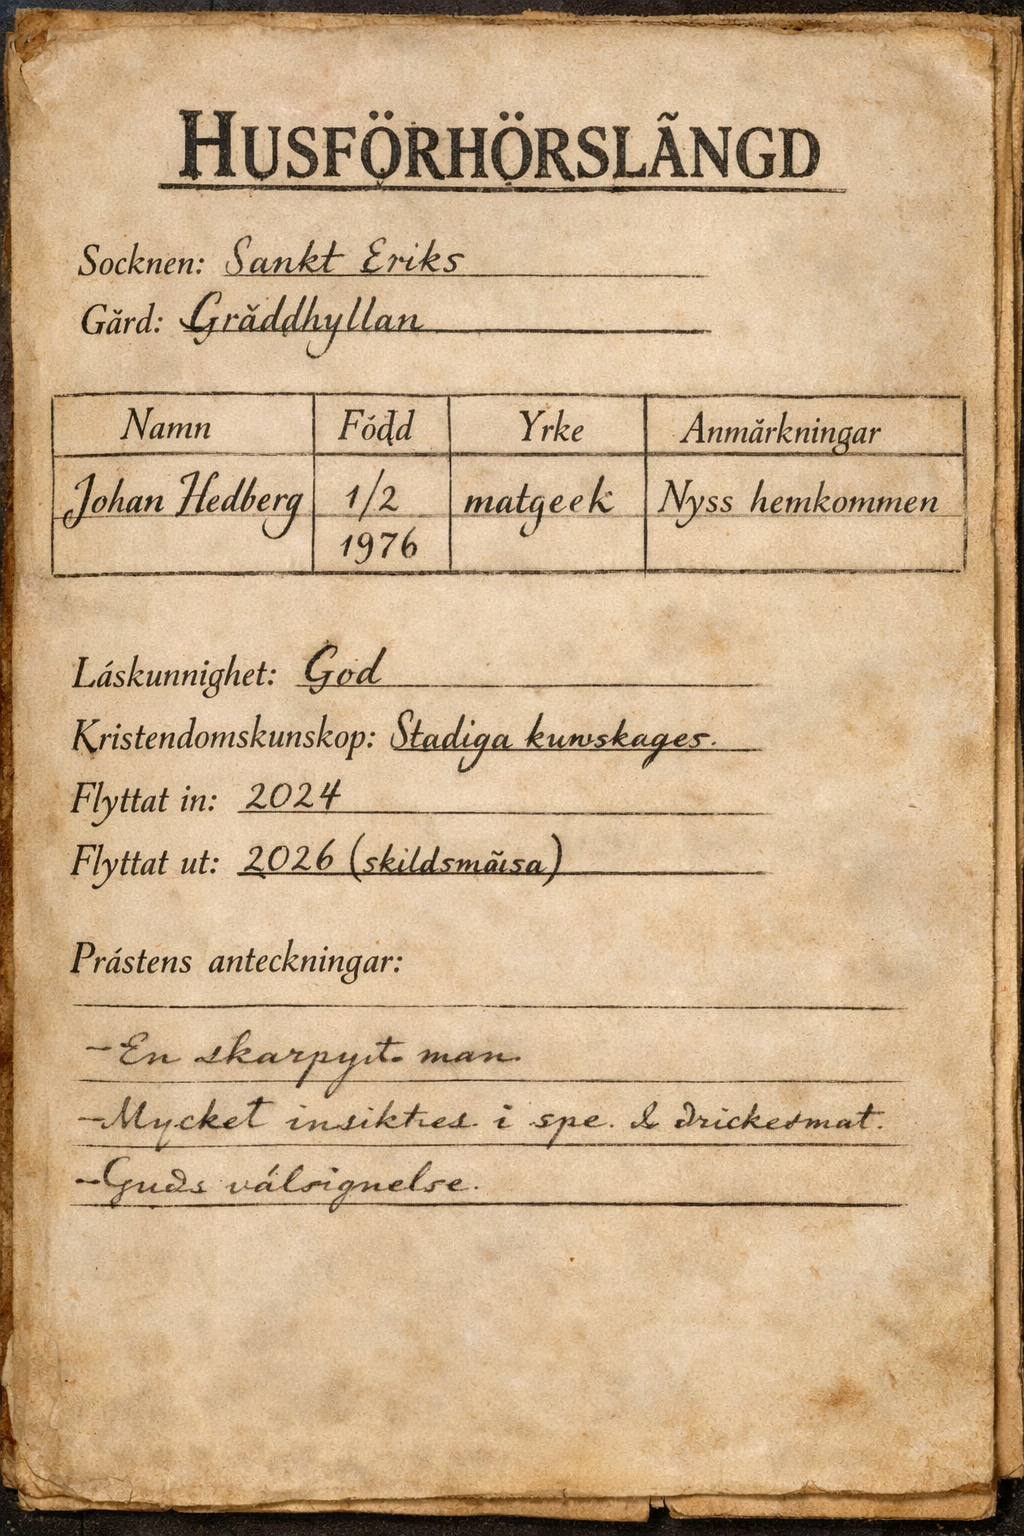 HUSFÖRHÖRSLÃNGD
Socknen: Sankt Eriks
Gărd: Grăddhyllan
Namn Fódd Yrke Anmărkningar
Johan Hedberg 1/2 matgeek Nyss hemkommen
1976
Láskunnighet: God
Kristendomskunskop: Stadiga kunskages.
Flyttat in: 2024
Flyttat ut: 2026 (skildsmãisa)
Prástens anteckningar:
-En man.
-Mycket i spe. & drickesmat.
-Guds válsignelse.